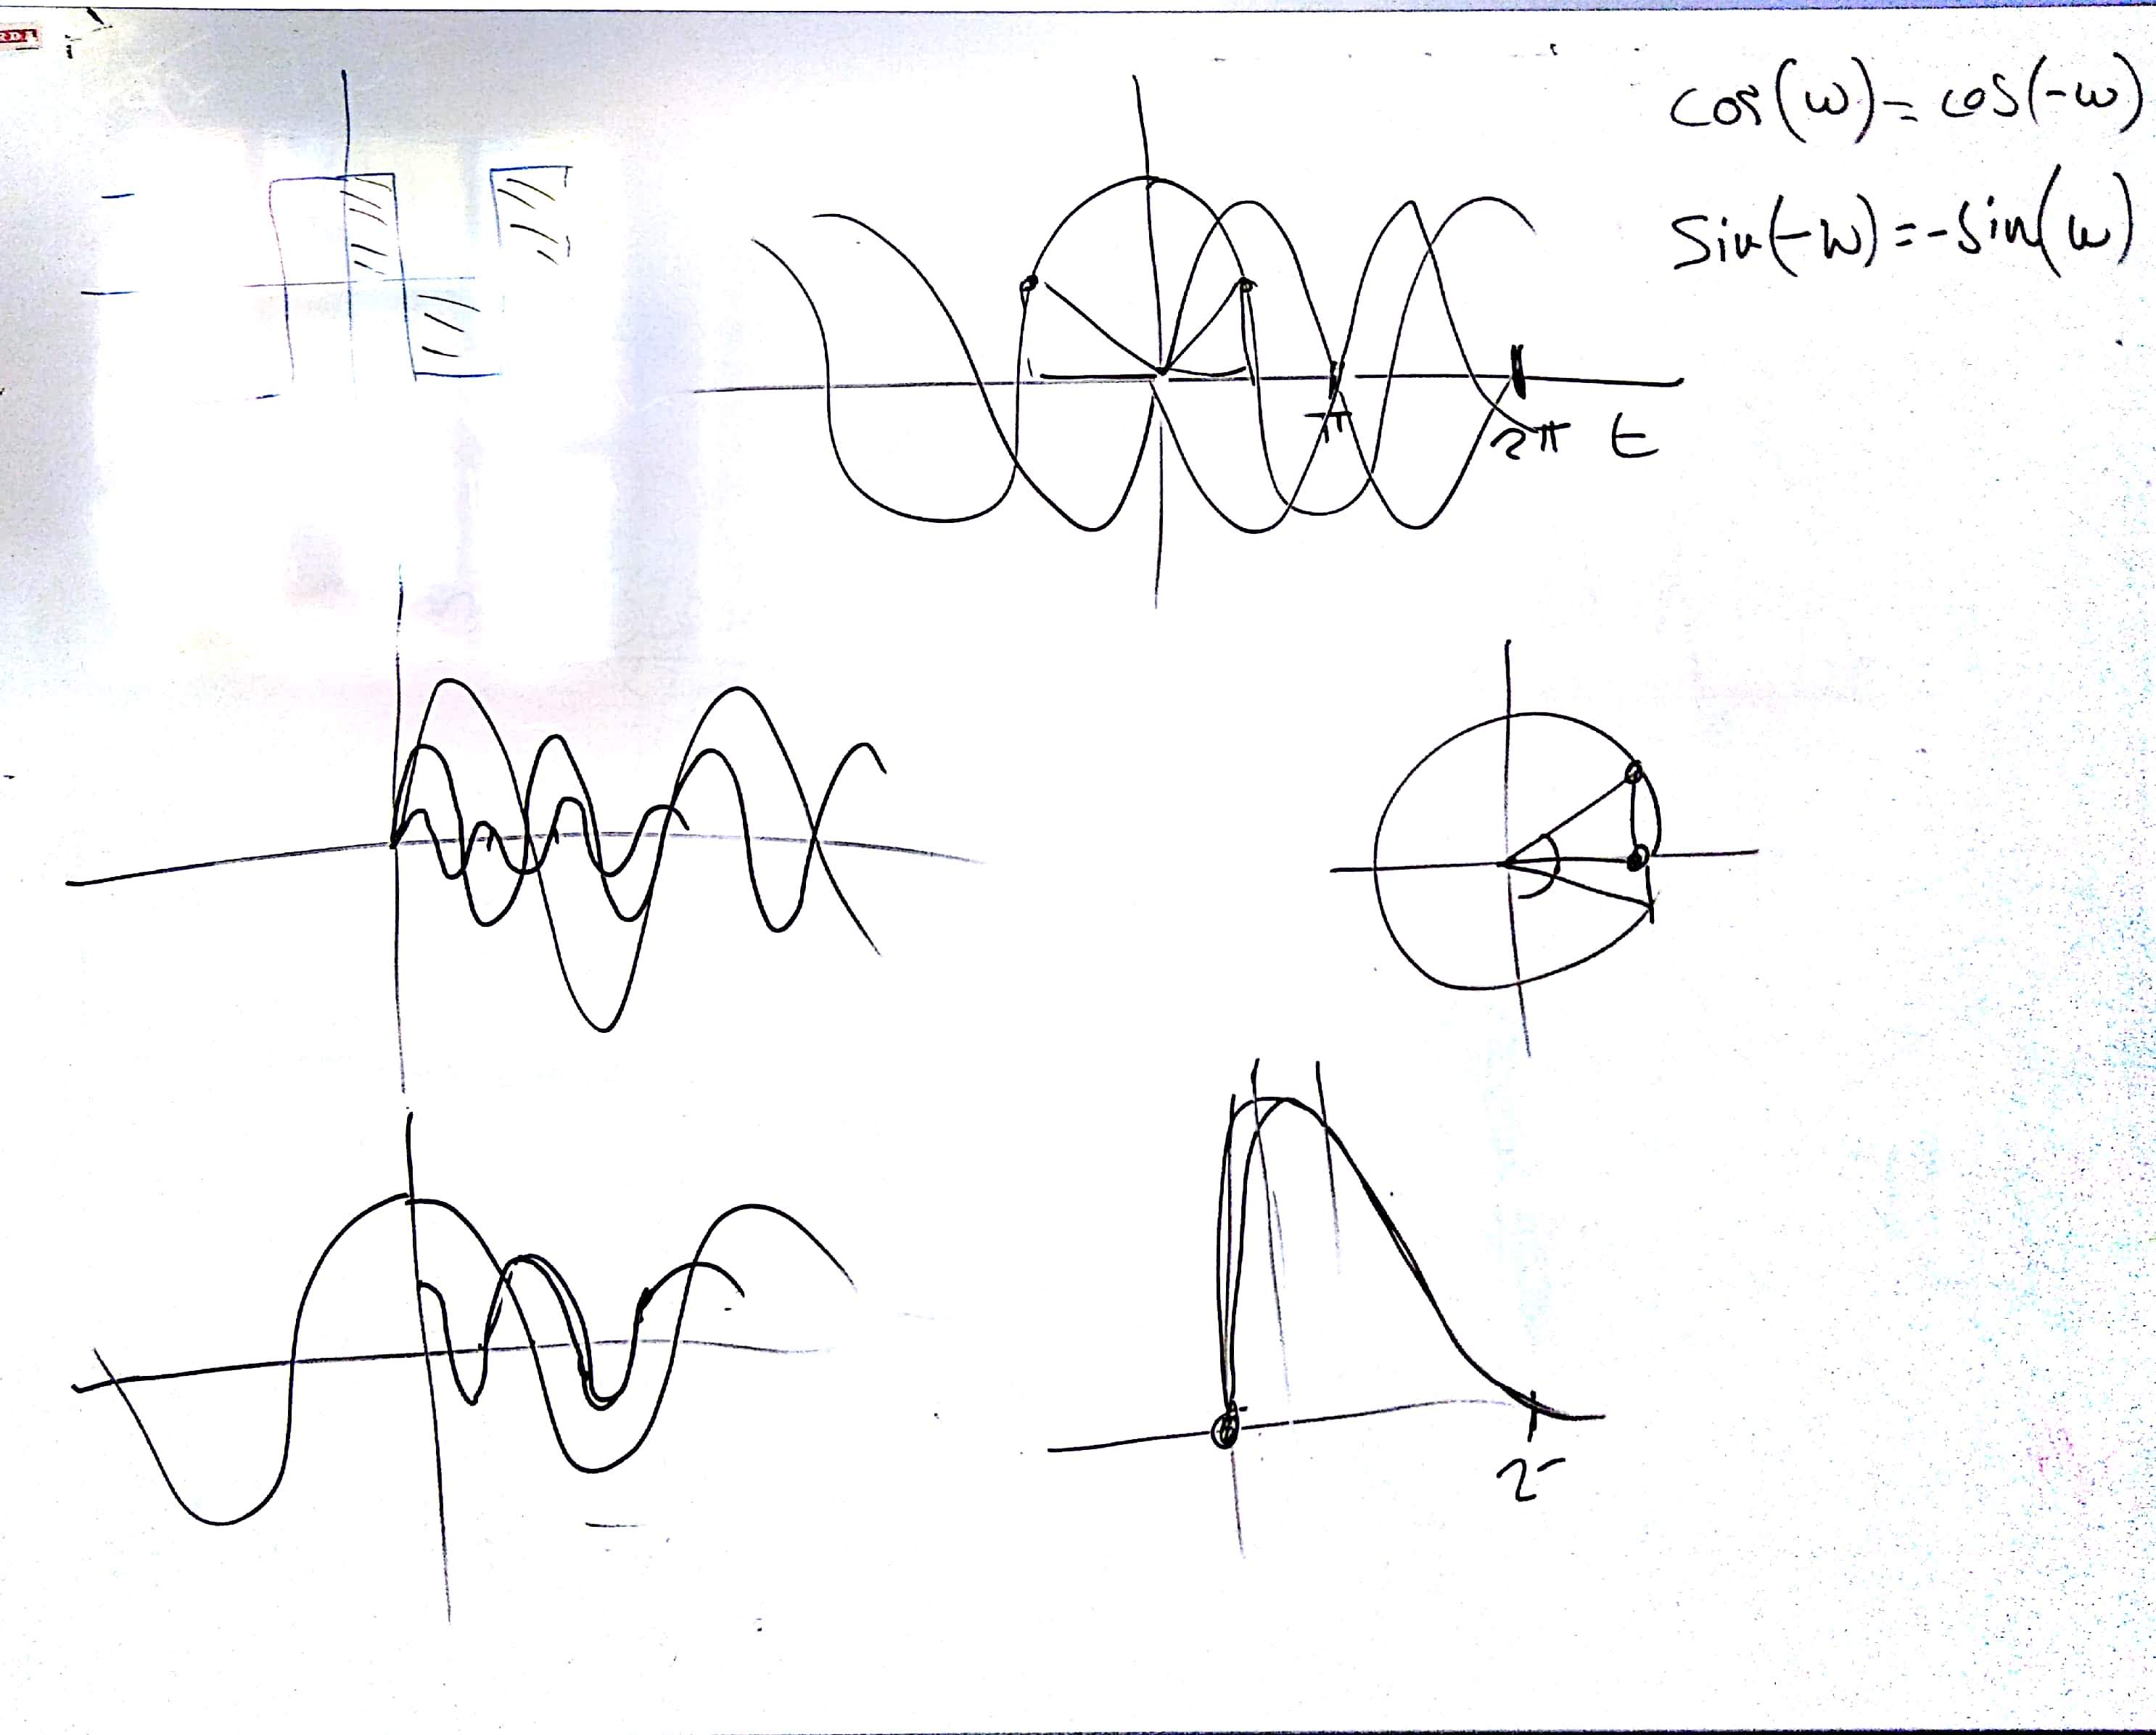 cos(ω) = cos(-ω)
sin(-ω) = -sin(ω)
π
2π t